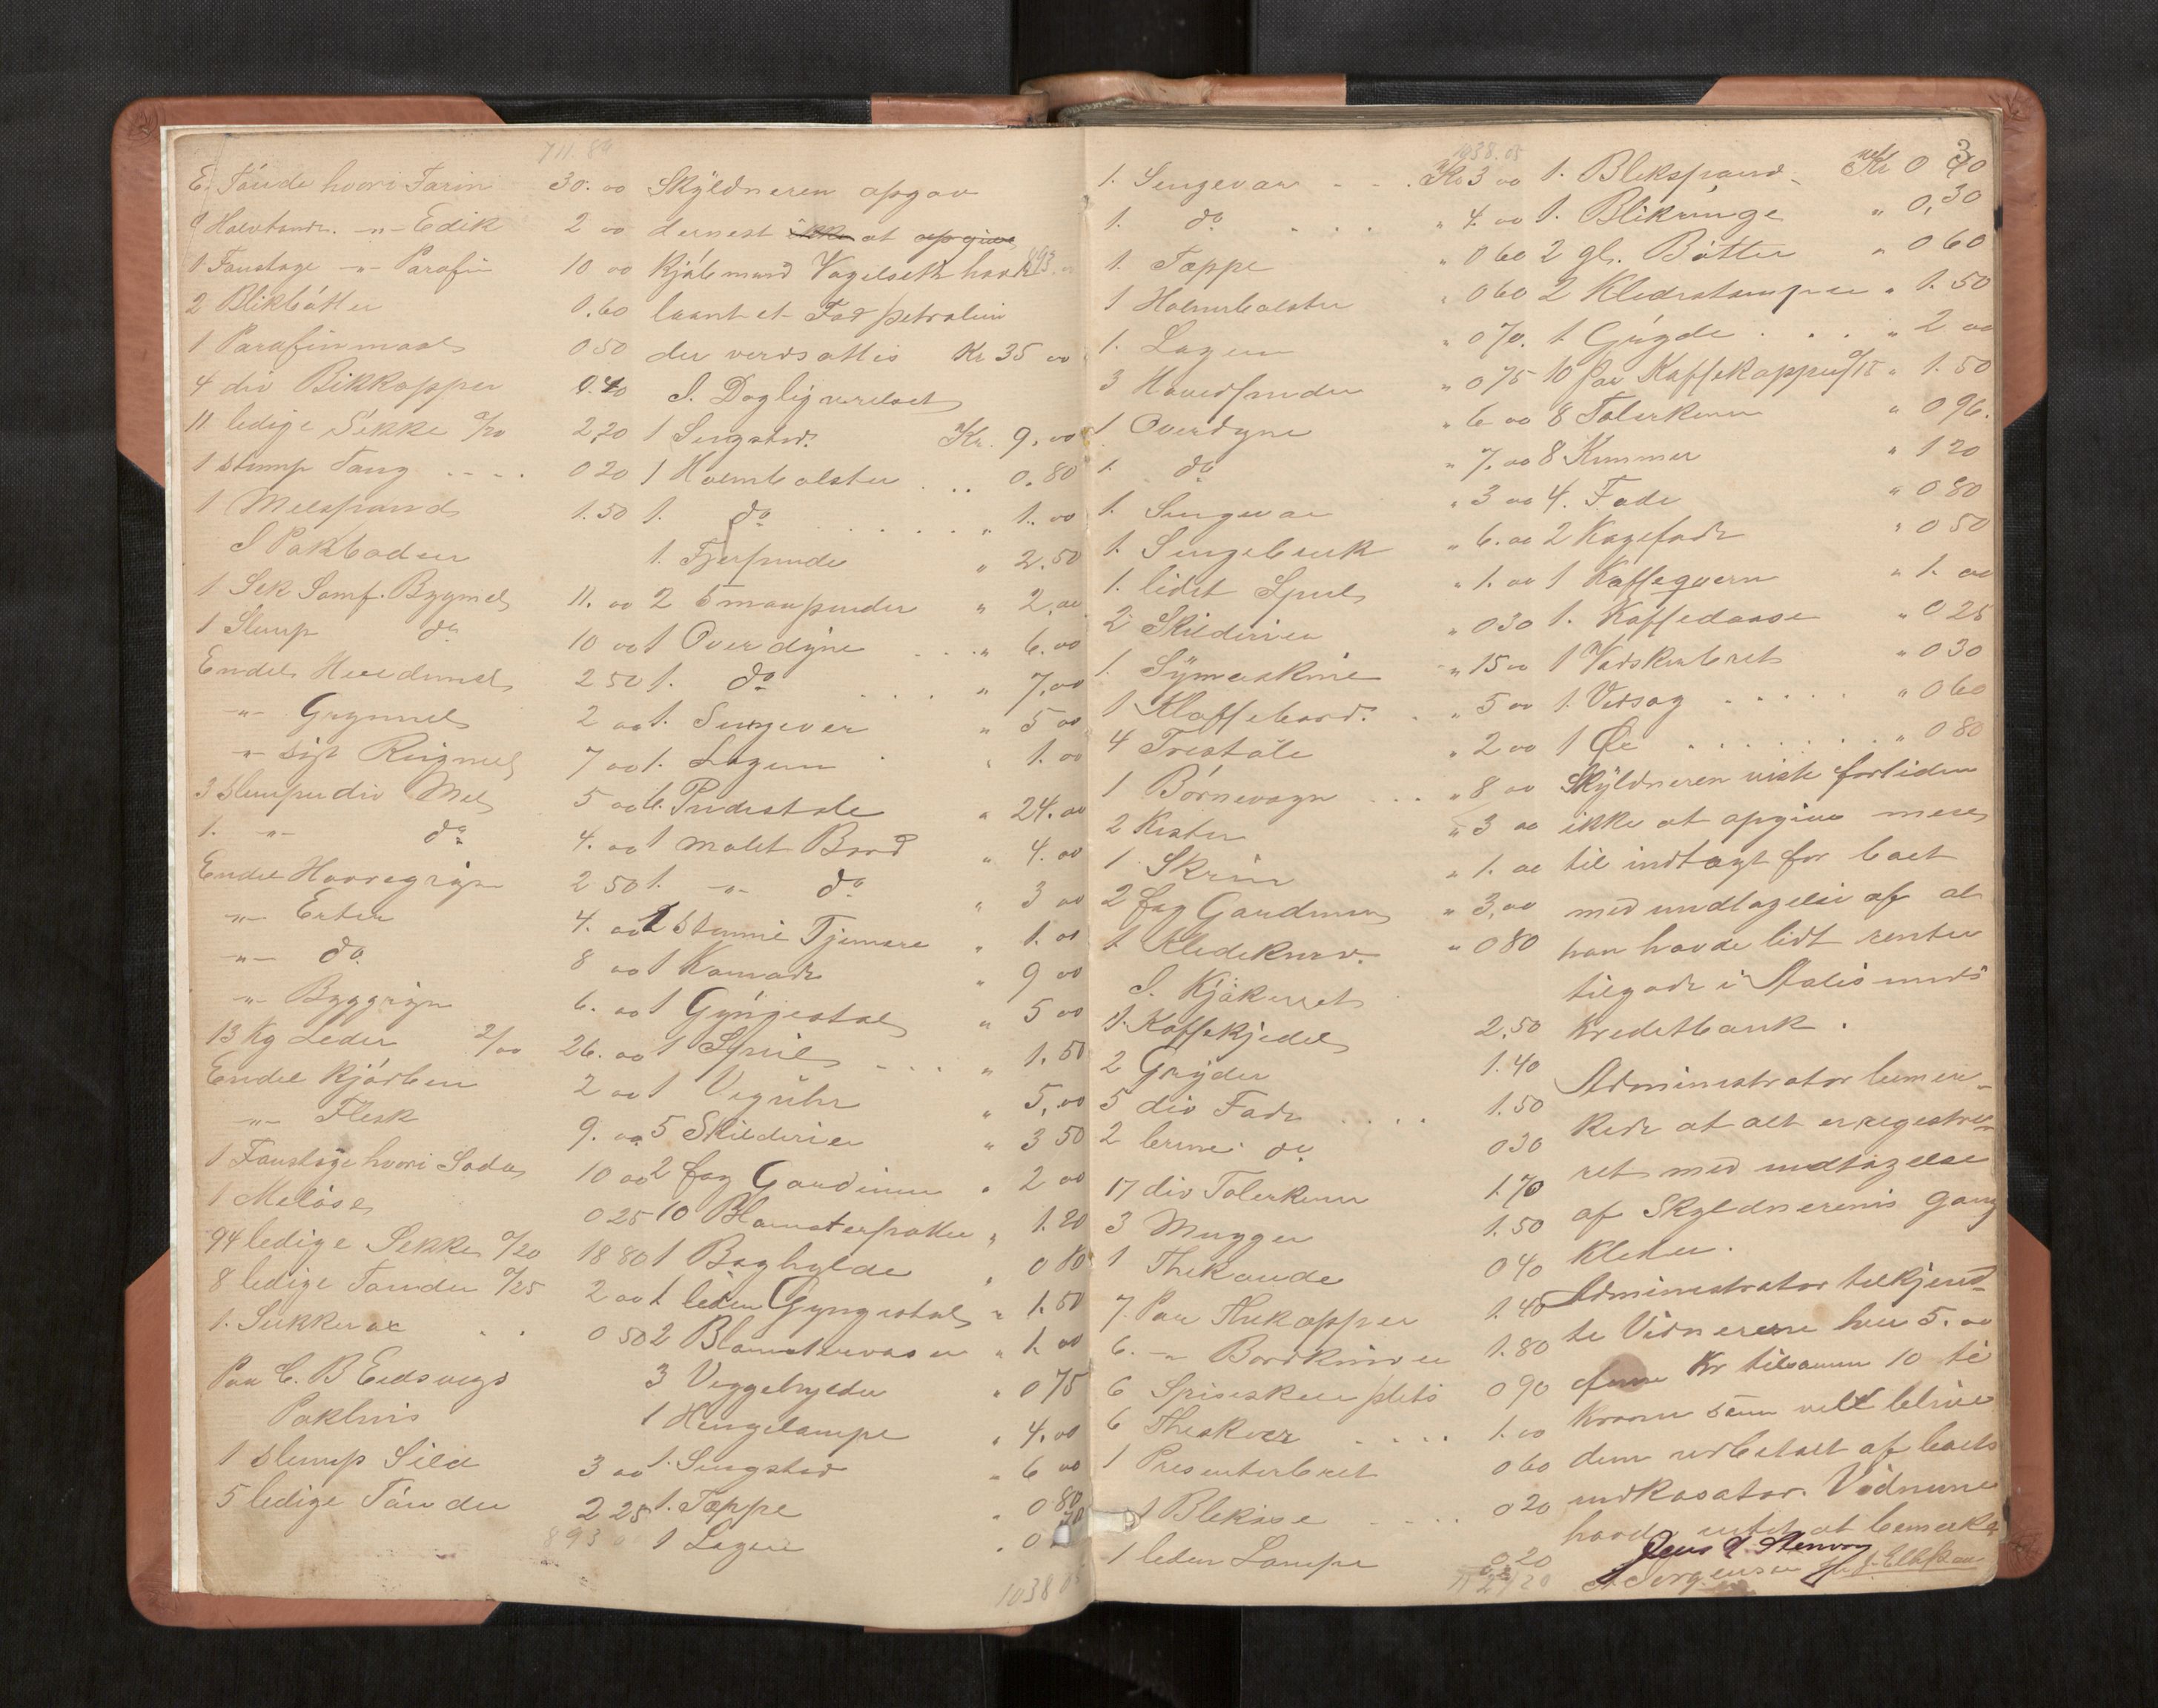 711.80
E. Tønde hvori Farin 30.00
1 Halvtønde -"- Edik 2 00
1 Faustage -"- Parafin 10 00
2 Blikbøtter 0.60
1 Parafinmaal 0 50
4 div Blikkopper 0.40
11 ledige Sekke 0/20 2,20
1 slump Taug 0 20
1 Melspand 1.50
I Pakboden
1 Sek Samf. Bygmel 11.00
1 Slump do 10 00
Endel Hvedemel 2 50
-"- Grynmel 2 00
-"- sigt Rugmel 7 00
3 slumper div Mel 5 00
1. -"- do 4.00
Endel Havregryn 2 50
-"- Erter 4.00
-"- do. 8 00
-"- Byggryn 6.00
13 Kg Leder 2/00 26.00
Endel Kjød 2 00
-"- Flesk 9.00
1 Faustage hvori Soda 10 00
1 Meløse 0 25
94 ledige Sekke 0/20 18 80
8 ledige Tønder 0/25 2 00
1. Sukkerax 0 50
Paa C. B Eidsvigs
Pakhus
1 slump Sild 3 00
5 ledige Tønder 2 25
893 0
Skyldneren opgav
dernest ikke at opgive
Kjøbmand Vagelseth har 893.
laant et Fad petroleum
der verdsattes Kr 35 00
I. Dagligverelset
1 Sengsted. Kr. 9.00
1 Halmbolster 0.80
1. do " 1.00
1. Fjerpude " 2.50
2 smaaputer " 2.00
1 Overdyne " 6.00
1. do " 7,00
1. Sengever " 5 00
1. Lagen " 1.00
6. Pudestole " 24.00
1 malet Bord " 4.00
1. -"- do. " 3 00
1 Kamode " 9 00
1 Gyngestol " 5 00
1 Speil " 1.50
1 Veguhr " 5,00
5 Skilderier " 3 50
2 fag Gardiner " 2 00
10 Blomsterpotter " 1.20
1 Boghylde " 0 80
1 liden Gyngestol " 1.50
2 Blomstervaser " 1.00
3 Veggehylder " 0 75
1 Hengelampe " 4.00
1. Sengsted " 6 00
1. Teppe " 0 80
1 Lagen " 0 70
1038 05
1038.05
1. Sengevar Kr 3 00
1. do " 4.00
1. Teppe " 0 60
1 Halmbolster " 0 60
1. Lagen " 0 70.
3 Hovedpuder " 0 75
1 Overdyne " 6 00
1. do " 7.00
1. Sengevar " 3 00
1. Sengebenk " 6.00
1. lidet Speil " 1.00
2 Skilderier " 0 30
1. Symaskine " 15 00
1 Klaffebord. " 5 00
4 Trestole " 2 00
1 Børnevogn " 8 00
2 Kister " 3 00
1 Skrin " 1.00
2 fag Gardiner " 3,00
1 Kledekurv. " 0 80
I. Kjøkkenet
1. Kaffekjedel 2.50
2 Gryder 1.40
5 div Fade 1.50
2 do 0 30
17 div Tolerkener 1.70
3 Mugger 1.50
1 Thekande 0 40
7. Par Thekopper 1.40
6. -"- Bordkniver 1.80
6 Spiseskeer 0 90
6 Theskeer 1.00
1 Presenterbret 0 60
1 Blekøse 0 20
1 liden Lampe 0 20
3
1. Blekspand Kr 0 40
1. Blikringe " 0,30
2 gl. Bøtter " 0 60
2 Kledestamper " 1.50
1 Gryde " 2 00
10 par Kaffekopper 0/15 " 1.50
8 Tolerkener " 0 96.
8 Kummer " 1 20
4. Fade " 0 80
2 Kagefade " 0 50
1 Kaffeqvern " 1.00
1. Kaffedaase " 0 25
1 Vadskebret " 0 30
1. Vedsag " 0 60
1 Øx " 0 80
Skyldneren viste fortiden
ikke at opgive mere
til indtægt for boet
med undtagelse af at
han havde lidt renter
tilgode i Aalesunds
Kreditbank.
Administrator bemer-
kede at alt er registre-
ret med undtagelse
af Skyldnerens gang
Kleder.
Administrator tilkjend-
te Vidnerne hver 5.00
fem Kr tilsammen 10 ti
Kroner som vilt blive
dem udbetalt af boets
indkasator. Vidnerne
havde intet at bemerke
Jens Stenvaag
Jørgensen